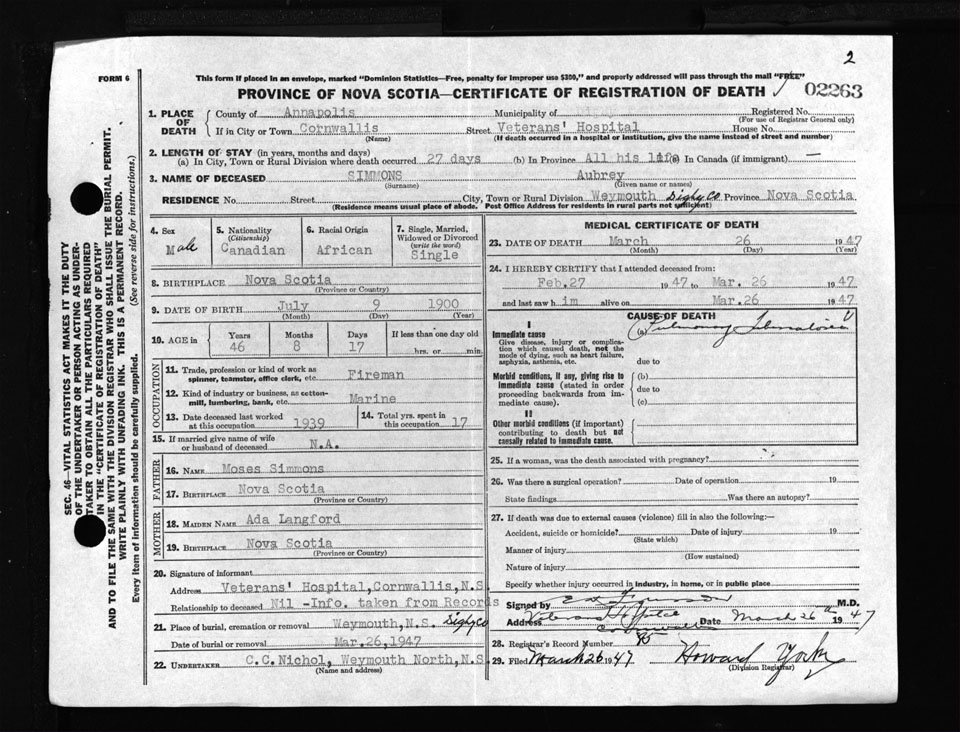 2
FORM 6
This form if placed in an envelope, marked "Dominion Statistics—Free, penalty for improper use $300," and properly addressed will pass through the mail "FREE"
PROVINCE OF NOVA SCOTIA—CERTIFICATE OF REGISTRATION OF DEATH 02263
1. PLACE OF DEATH
County of Annapolis Municipality of Registered No.
(For use of Registrar General only)
If in City or Town Cornwallis Street Veterans' Hospital House No.
(Name) (If death occurred in a hospital or institution, give the name instead of street and number)
2. LENGTH OF STAY (in years, months and days)
(a) In City, Town or Rural Division where death occurred 27 days (b) In Province All his life (c) In Canada (if immigrant) —
3. NAME OF DECEASED SIMMONS Aubrey
(Surname) (Given name or names)
RESIDENCE No. Street City, Town or Rural Division Weymouth Digby Co Province Nova Scotia
(Residence means usual place of abode. Post Office Address for residents in rural parts not sufficient)
4. Sex Male
5. Nationality (Citizenship) Canadian
6. Racial Origin African
7. Single, Married, Widowed or Divorced (write the word) Single
8. BIRTHPLACE Nova Scotia
(Province or Country)
9. DATE OF BIRTH July 9 1900
(Month) (Day) (Year)
10. AGE in Years 46 Months 8 Days 17 If less than one day old hrs. or min.
OCCUPATION
11. Trade, profession or kind of work as spinner, teamster, office clerk, etc. Fireman
12. Kind of industry or business, as cotton-mill, lumbering, bank, etc. Marine
13. Date deceased last worked at this occupation 1939
14. Total yrs. spent in this occupation 17
15. If married give name of wife or husband of deceased N.A.
FATHER
16. NAME Moses Simmons
17. BIRTHPLACE Nova Scotia
(Province or Country)
MOTHER
18. MAIDEN NAME Ada Langford
19. BIRTHPLACE Nova Scotia
(Province or Country)
20. Signature of informant
Address Veterans' Hospital, Cornwallis, N.S.
Relationship to deceased Nil -Info. taken from Records
21. Place of burial, cremation or removal Weymouth, N.S. Digby Co
Date of burial or removal Mar. 26, 1947
22. UNDERTAKER C.C. Nichol, Weymouth North, N.S.
(Name and address)
MEDICAL CERTIFICATE OF DEATH
23. DATE OF DEATH March 26 1947
(Month) (Day) (Year)
24. I HEREBY CERTIFY that I attended deceased from:
Feb. 27 1947 to Mar. 26 1947
and last saw him alive on Mar. 26 1947
CAUSE OF DEATH
I
Immediate cause
Give disease, injury or complication which caused death, not the mode of dying, such as heart failure, asphyxia, asthenia, etc.
(a) Pulmonary
due to
Morbid conditions, if any, giving rise to immediate cause (stated in order proceeding backwards from immediate cause).
(b)
due to
(c)
II
Other morbid conditions (if important) contributing to death but not causally related to immediate cause.
25. If a woman, was the death associated with pregnancy?
26. Was there a surgical operation? Date of operation 19
State findings Was there an autopsy?
27. If death was due to external causes (violence) fill in also the following:—
Accident, suicide or homicide? Date of injury 19
(State which)
Manner of injury
(How sustained)
Nature of injury
Specify whether injury occurred in industry, in home, or in public place
Signed by M.D.
Address Veterans Hospital Cornwallis Date March 26th 1947
28. Registrar's Record Number 95
29. Filed March 26 1947 Howard York
(Division Registrar)
SEC. 46—VITAL STATISTICS ACT MAKES IT THE DUTY
OF THE UNDERTAKER OR PERSON ACTING AS UNDER-
TAKER TO OBTAIN ALL THE PARTICULARS REQUIRED
IN THE "CERTIFICATE OF REGISTRATION OF DEATH"
AND TO FILE THE SAME WITH THE DIVISION REGISTRAR WHO SHALL ISSUE THE BURIAL PERMIT.
WRITE PLAINLY WITH UNFADING INK. THIS IS A PERMANENT RECORD.
Every item of information should be carefully supplied. (See reverse side for instructions.)